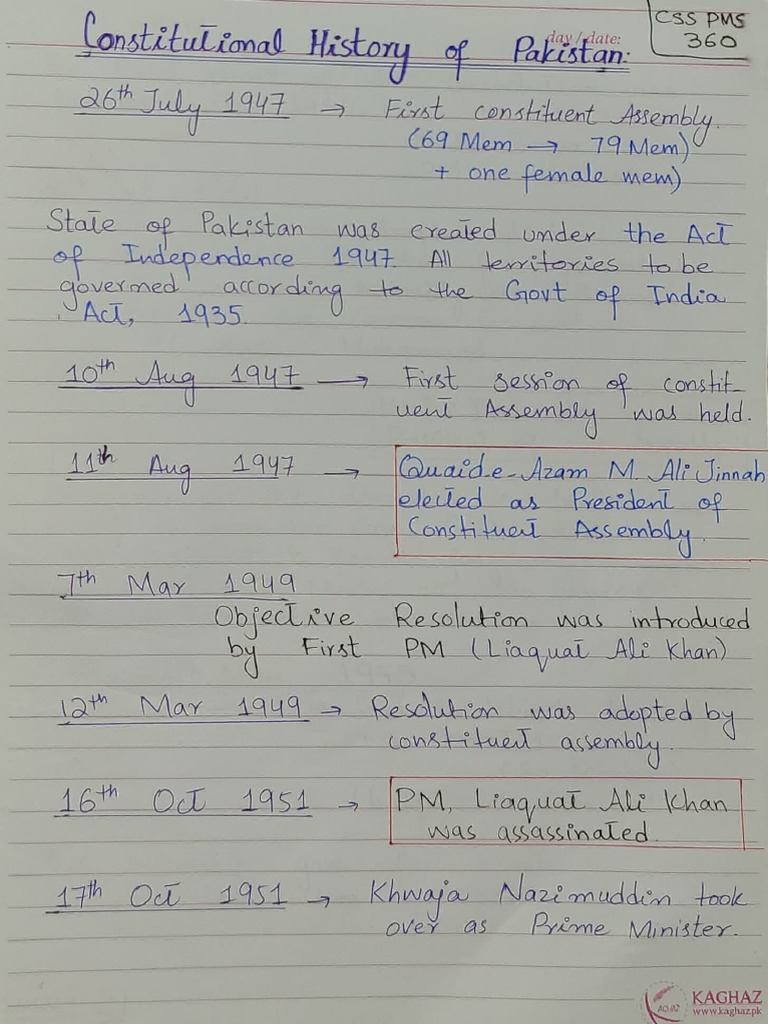 CSS PMS
360
day / date:
Constitutional History of Pakistan:
26th July 1947 → First constituent Assembly.
(69 Mem → 79 Mem)
+ one female mem)
State of Pakistan was created under the Act
of Independence 1947. All territories to be
governed according to the Govt of India
Act, 1935.
10th Aug 1947 → First session of constit-
uent Assembly was held.
11th Aug 1947 → Quaid-e-Azam M. Ali Jinnah
elected as President of
Constituent Assembly.
7th Mar 1949
Objective Resolution was introduced
by First PM (Liaquat Ali Khan)
12th Mar 1949 → Resolution was adopted by
constituent assembly.
16th Oct 1951 → PM, Liaquat Ali Khan
was assassinated.
17th Oct 1951 → Khwaja Nazimuddin took
over as Prime Minister.
KAGHAZ
www.kaghaz.pk